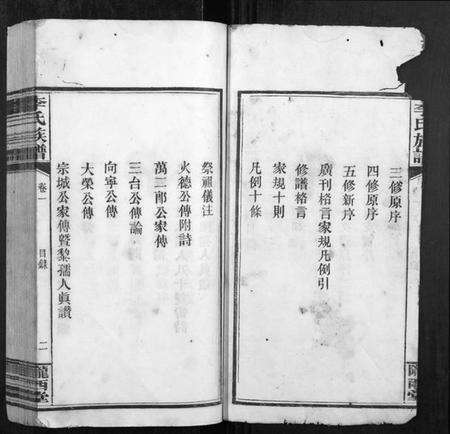 三修原序
四修原序
五修新序
廣刊格言家規凡例引
修譜格言
家規十則
凡例十條
李氏族譜
隴西堂
祭祖儀注
火德公傳附詩
萬二郎公家傳
三台公傳論
向寧公傳
大榮公傳
宗城公家傳暨黎孺人眞讚
李氏族譜
卷一
目錄
二
隴西堂